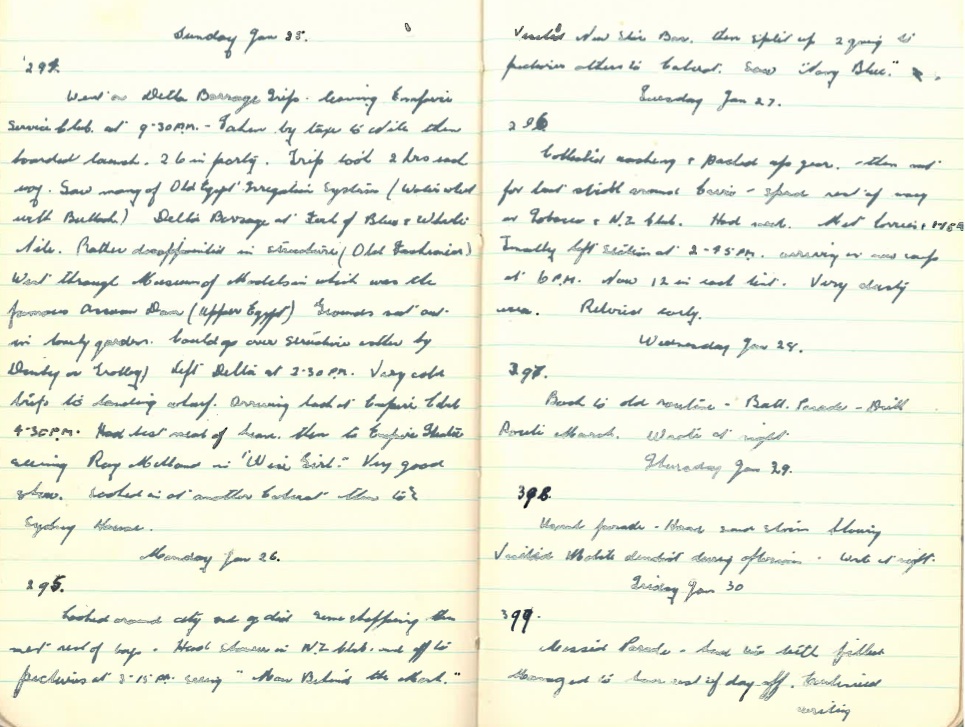 Sunday Jan 25.
294.
Went on Delta Barrage Trip. leaving Empire
Service Club. at 9-30 P.M. - Taken by taxi to Nile then
boarded launch. 26 in party. Trip took 2 hrs each
way. Saw many of Old Egypt Irregation Systims (Water wheel
with Bullock) Delta Barrage at Fork of Blue & White
Nile. Rather disappointed in structure (Old Fashioned)
Went through Museum of Models in which was the
famous Assuan Dam (Upper Egypt) Grounds set out
in lovely gardens. Could go over structure either by
Donkey or Trolley) Left Delta at 2-30 P.M. Very cold
trip to landing wharf. arriving back at Empire Club
4-30 P.M. Had best meal of leave. then to Empire Theatre
seeing Ray Milland in "Wise Girl." Very good
show. Looked in at another Cabaret then to
Sydney House.
Monday Jan 26.
295.
Looked around city and did some shopping then
met rest of boys. Had shower in N.Z. Club. and off to
pictures at 3-15 P.M. seeing "Man Behind the Mask."
Visited New Bar. then split up 2 going to
pictures others to Cabaret. Saw "Navy Blue."
Tuesday Jan 27.
296
Collected washing & packed up gear. - then out
for last stroll around Cairo - spend rest of money
on Tobacco & N.Z. Club. Had meal. Met lorries
Finally left Station at 2-45 P.M. arriving in new camp
at 6 P.M. Now 12 in each tent. Very dusty
area. Retired early.
Wednesday Jan 28.
397.
Back to old routine - Batt. Parade - Drill
Route March. Wrote at night
Thursday Jan 29.
398.
Usual parade - Had sand storm blowing
Visited Mobile dentist during afternoon. Wrote at night.
Friday Jan 30
399.
Missed Parade - had tooth filled
Managed to have rest of day off. Continued
writing